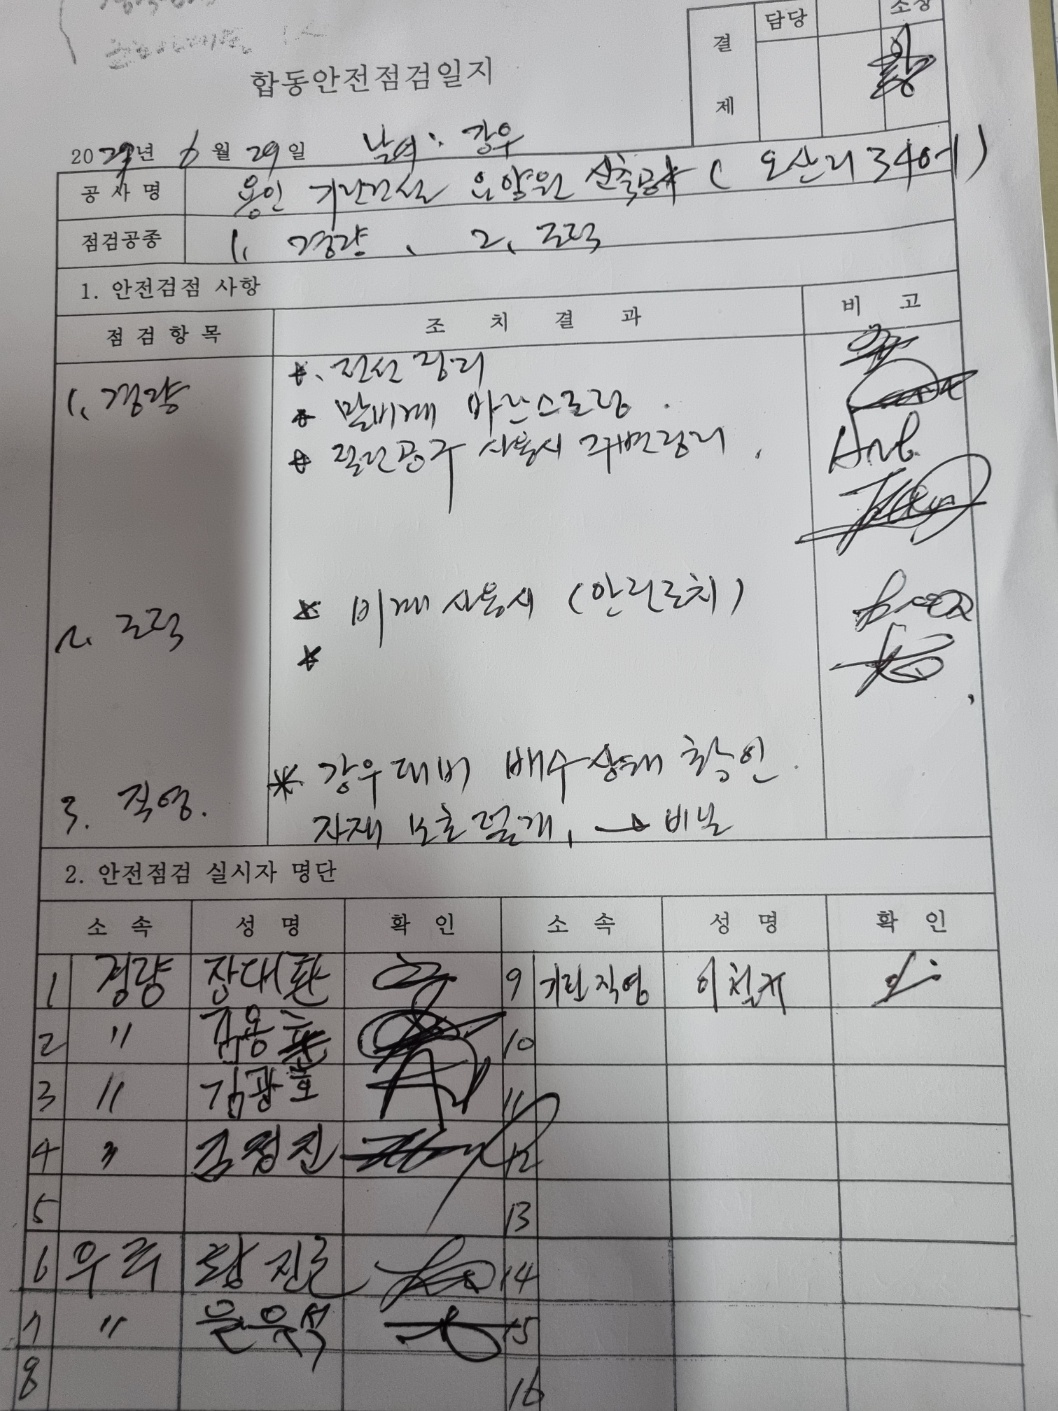 결 제
담당
소장
합동안전점검일지
20 년 6월 29일 날씨: 강우
공사명 용인 기린건설 요양원 신축공사 ( 오산리 340-1 )
점검공종 1. 경량 、 2. 조적
1. 안전검점 사항
점검항목 조치결과 비고
1. 경량
*. 전선 정리
* 말비계 바란스조정 .
* 절단공구 사용시 주변정리 .
2. 조적
* 비계 사용시 (안전조치)
*
3. 직영.
* 강우대비 배수상태 확인.
자재 보호 덮개, → 비닐
2. 안전점검 실시자 명단
소속 성명 확인 소속 성명 확인
1 경량 장대환 9 기린직영
2 〃 김용 10
3 〃 김광호 11
4 〃 김정진 12
5 13
6 우주 진 14
7 〃 윤석 15
8 16